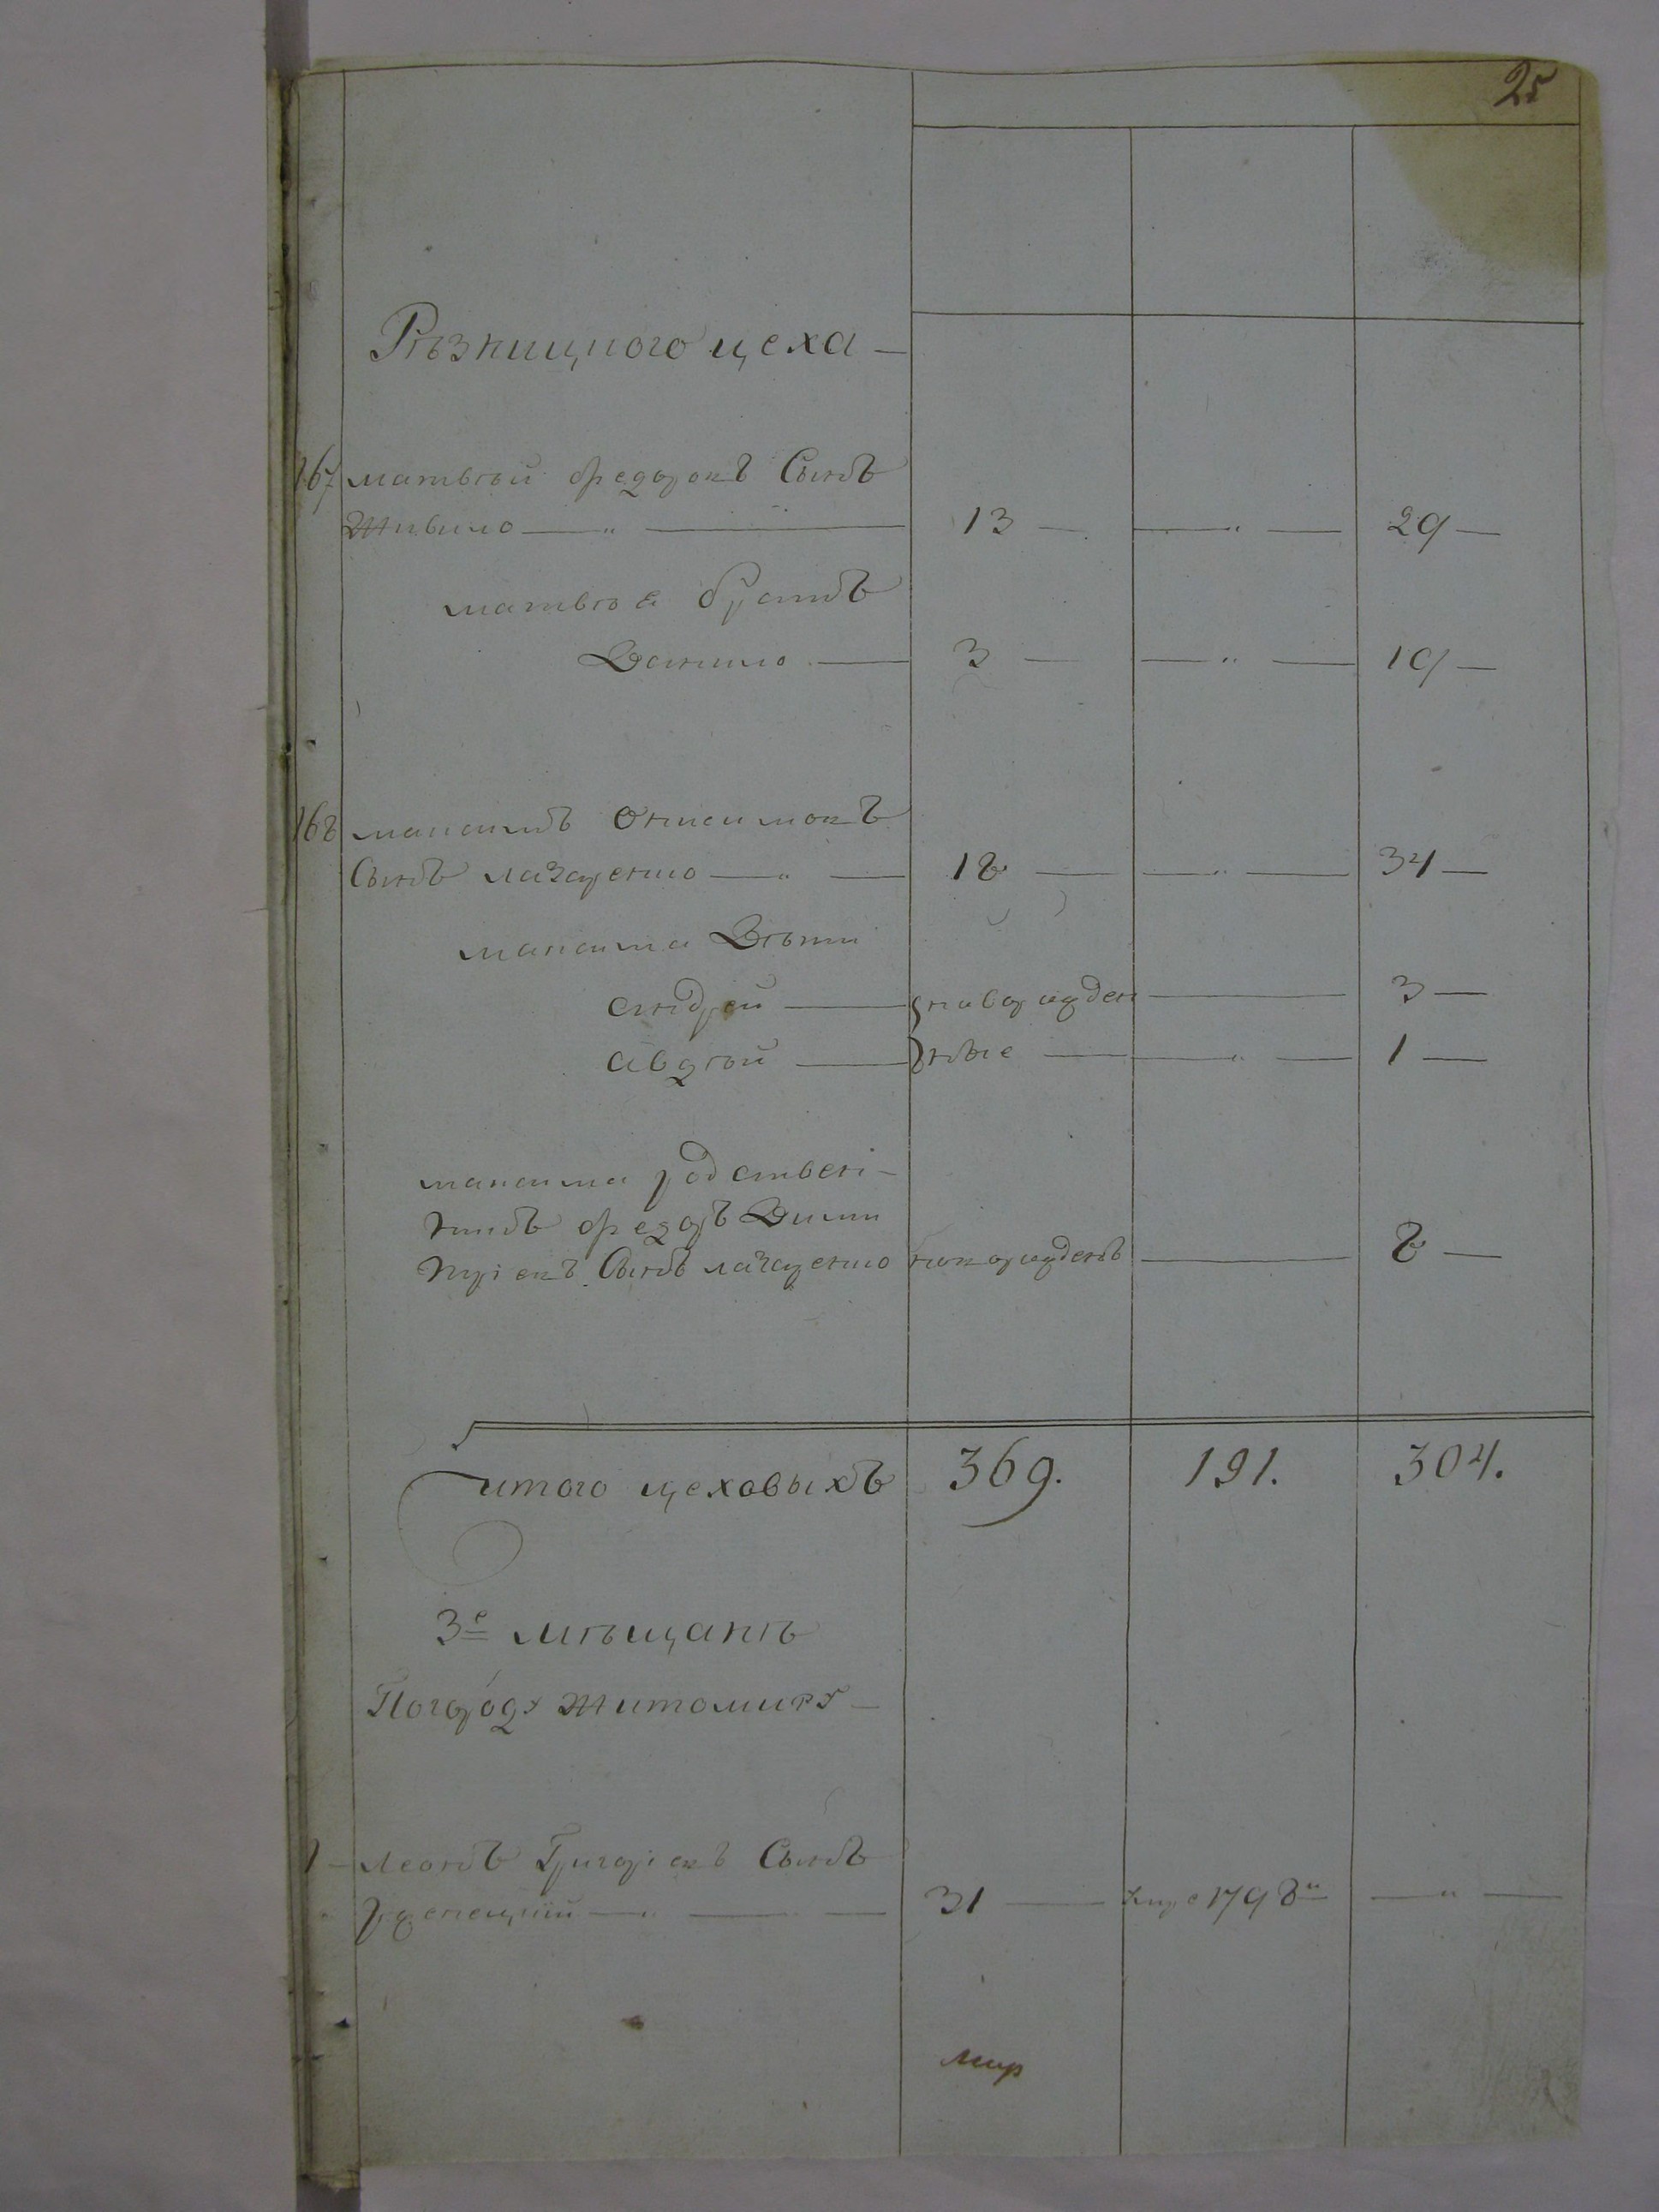 25
Рѣзницкого цеха —
167 матвѣй федоровъ Сынъ
Живило — " — 13 — — " — 29 —
матвѣя братъ
Данило — 3 — — " — 19 —
168 максимъ Онисимовъ
Сынъ лазаренко — " — 18 — — " — 34 —
максима Дѣти
андрей — новорожден — 3 —
авдѣй — ные — — " — 1 —
максима родствен-
никъ федоръ Дмит
ріевъ Сынъ лазаренко новорожденъ — 8 —
итого цеховыхъ 369. 191. 304.
3е мѣщанъ
Погороду Житомиру —
1 — леонъ Григоріевъ Сынъ
— " — 31 — 1798 — " —
мир